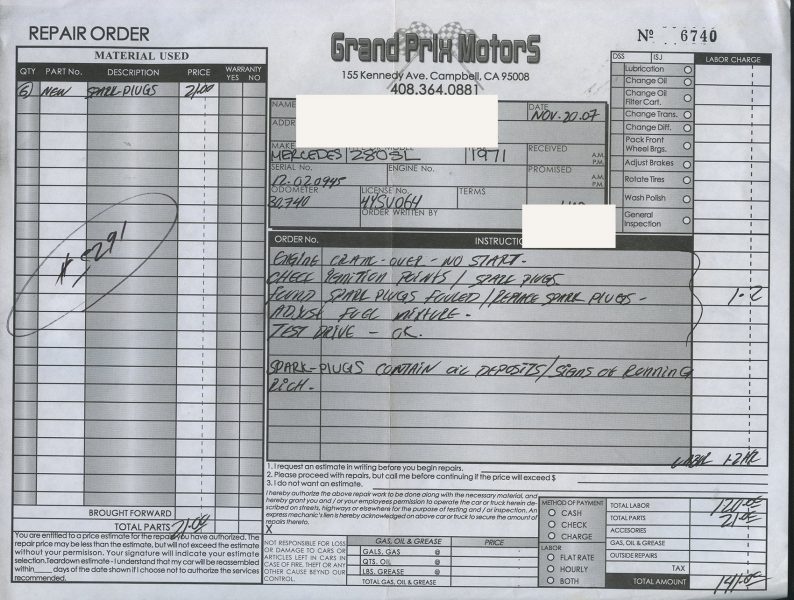 REPAIR ORDER
Grand Prix Motors
155 Kennedy Ave. Campbell, CA 95008
408.364.0881
Nº 6740
MATERIAL USED
QTY PART No. DESCRIPTION PRICE WARRANTY YES NO
(6) NEW SPARK-PLUGS 21.00
#5291
BROUGHT FORWARD
TOTAL PARTS 21.00
You are entitled to a price estimate for the repair you have authorized. The
repair price may be less than the estimate, but will not exceed the estimate
without your permission. Your signature will indicate your estimate
selection. Teardown estimate - I understand that my car will be reassembled
within____ days of the date shown if I choose not to authorize the services
recommended.
NAME
DATE
NOV. 20.07
ADDR
MAKE
MERCEDES 280SL 1971
RECEIVED A.M. P.M.
SERIAL No. ENGINE No.
12-020945
PROMISED A.M. P.M.
ODOMETER LICENSE No. TERMS
30,740 4YSV064
ORDER WRITTEN BY
DSS ISJ LABOR CHARGE
Lubrication
Change Oil
Change Oil
Filter Cart.
Change Trans.
Change Diff.
Pack Front
Wheel Brgs.
Adjust Brakes
Rotate Tires
Wash Polish
General
Inspection
ORDER No. INSTRUCTIO
ENGINE CRANK-OVER - NO START.
CHECK IGNITION POINTS / SPARK PLUGS
FOUND SPARK PLUGS FOULED / REPLACE SPARK PLUGS - 1.2
ADJUST FUEL MIXTURE -
TEST DRIVE - OK.
SPARK-PLUGS CONTAIN OIL DEPOSITS / SIGNS OF RUNNING
RICH -
LABOR 1.2 HR
1. I request an estimate in writing before you begin repairs.
2. Please proceed with repairs, but call me before continuing if the price will exceed $
3. I do not want an estimate.
I hereby authorize the above repair work to be done along with the necessary material, and
hereby grant you and / or your employees permission to operate the car or truck herein de-
scribed on streets, highways or elsewhere for the purpose of testing and / or inspection. An
express mechanic's lien is hereby acknowledged on above car or truck to secure the amount of
repairs thereto.
X
NOT RESPONSIBLE FOR LOSS
OR DAMAGE TO CARS OR
ARTICLES LEFT IN CARS IN
CASE OF FIRE, THEFT OR ANY
OTHER CAUSE BEYND OUR
CONTROL
GAS, OIL & GREASE PRICE
GALS. GAS @
QTS. OIL @
LBS. GREASE @
TOTAL GAS, OIL & GREASE
METHOD OF PAYMENT
CASH
CHECK
CHARGE
LABOR
FLAT RATE
HOURLY
BOTH
TOTAL LABOR 120.00
TOTAL PARTS 21.00
ACCESORIES
GAS, OIL & GREASE
OUTSIDE REPAIRS
TAX
TOTAL AMOUNT 141.00